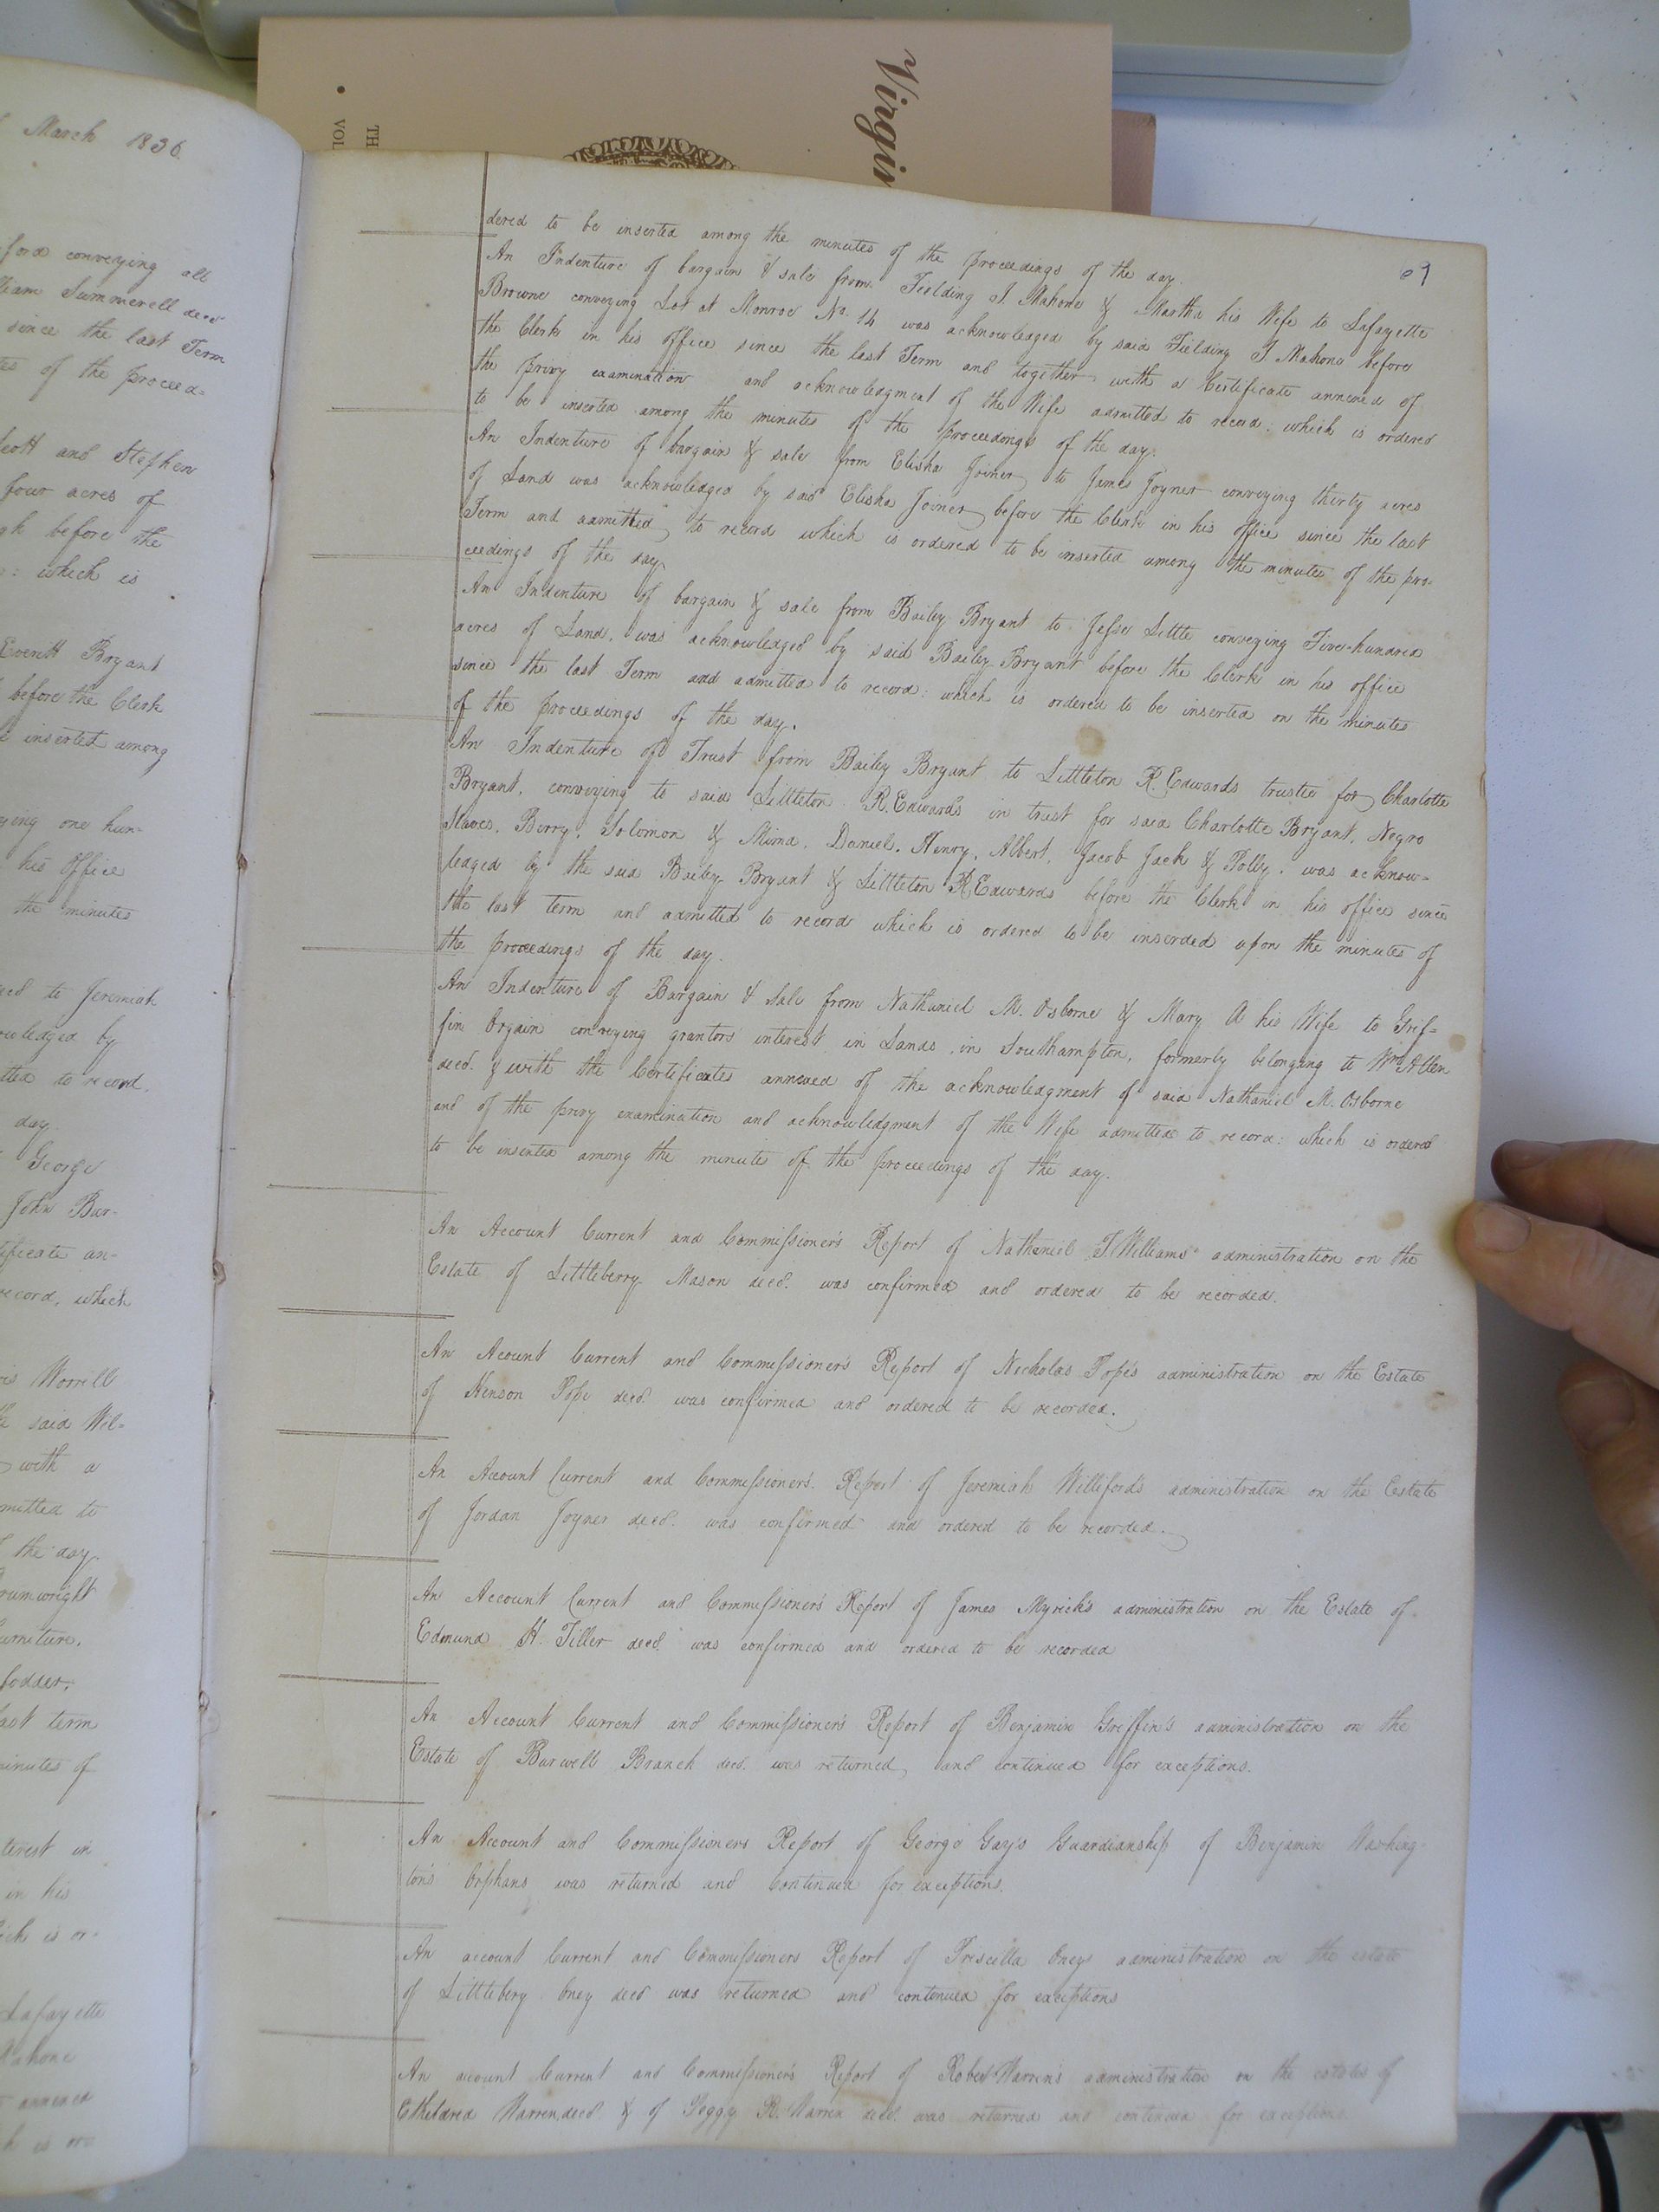 March 1836.
ford conveying all
liam Summerell decd
since the last Term
tes of the proceed-
Scott and Stephen
four acres of
gh before the
: which is
Everett Bryant
before the Clerk
inserted among
ying one hun-
his office
the minutes
eed to Jeremiah
owledged by
tted to record.
day.
George
John Bar-
tificate an-
record, which
is Worrell
said Wil-
with a
mitted to
the day
rumwright
urniture,
fodder,
last term
minutes of
terest in
in his
ich is or-
Lafayette
Mahone
annexed
h is or
Virgin
TH
VOL
69
dered to be inserted among the minutes of the proceedings of the day.
An Indenture of bargain & sale from Fielding J. Mahone & Martha his Wife to Lafayette
Browne conveying Lot at Monroe No. 14 was acknowledged by said Fielding J Mahone before
the Clerk in his office since the last Term and together with a Certificate annexed of
the privy examination and acknowledgment of the Wife admitted to record: which is ordered
to be inserted among the minutes of the proceedings of the day.
An Indenture of bargain & sale from Elisha Joiner to James Joyner conveying thirty acres
of Land was acknowledged by said Elisha Joiner before the Clerk in his office since the last
Term and admitted to record which is ordered to be inserted among the minutes of the pro-
ceedings of the day.
An Indenture of bargain & sale from Bailey Bryant to Jesse Little conveying Five-hundred
acres of Land, was acknowledged by said Bailey Bryant before the Clerk in his office
since the last Term and admitted to record: which is ordered to be inserted on the minutes
of the proceedings of the day.
An Indenture of Trust from Bailey Bryant to Littleton R. Edwards trustee for Charlotte
Bryant, conveying to said Littleton R. Edwards in trust for said Charlotte Bryant, Negro
Slaves, Berry, Solomon & Mima, Daniel, Henry, Albert, Jacob Jack & Polly, was acknow-
ledged by the said Bailey Bryant & Littleton R Edwards before the Clerk in his office since
the last term and admitted to record which is ordered to be inserded upon the minutes of
the proceedings of the day.
An Indenture of Bargain & Sale from Nathaniel M. Osborne & Mary A his Wife to Grif-
fin Orgain conveying grantors interest in Lands, in Southampton, formerly belonging to Wm Allen
decd. & with the Certificates annexed of the acknowledgment of said Nathaniel M. Osborne
and of the privy examination and acknowledgment of the Wife admitted to record: which is ordered
to be inserted among the minutes of the proceedings of the day.
An Account Current and Commissioner's Report of Nathaniel T. Williams' administration on the
Estate of Littleberry Mason decd. was confirmed and ordered to be recorded.
An Acount Current and Commissioner's Report of Nicholas Pope's administration on the Estate
of Henson Pope decd. was confirmed and ordered to be recorded.
An Account Current and Commissioner's Report of Jeremiah Williford's administration on the Estate
of Jordan Joyner decd. was confirmed and ordered to be recorded.
An Account Current and Commissioner's Report of James Myrick's administration on the Estate of
Edmund H. Tiller decd. was confirmed and ordered to be recorded
An Account Current and Commissioner's Report of Benjamin Griffin's administration on the
Estate of Burwell Branch decd. was returned, and continued for exceptions.
An Account and Commissioners Report of George Gay's Guardianship of Benjamin Washing-
ton's Orphans was returned and continued for exceptions.
An account Current and Commissioners Report of Priscilla Oneys administration on the estate
of Littlebery Oney decd was returned and continued for exceptions
An account Current and Commissioner's Report of Robert Warren's administration on the estates of
Etheldred Warren, decd. & of Peggy R. Warren decd. was returned and continued for exceptions.